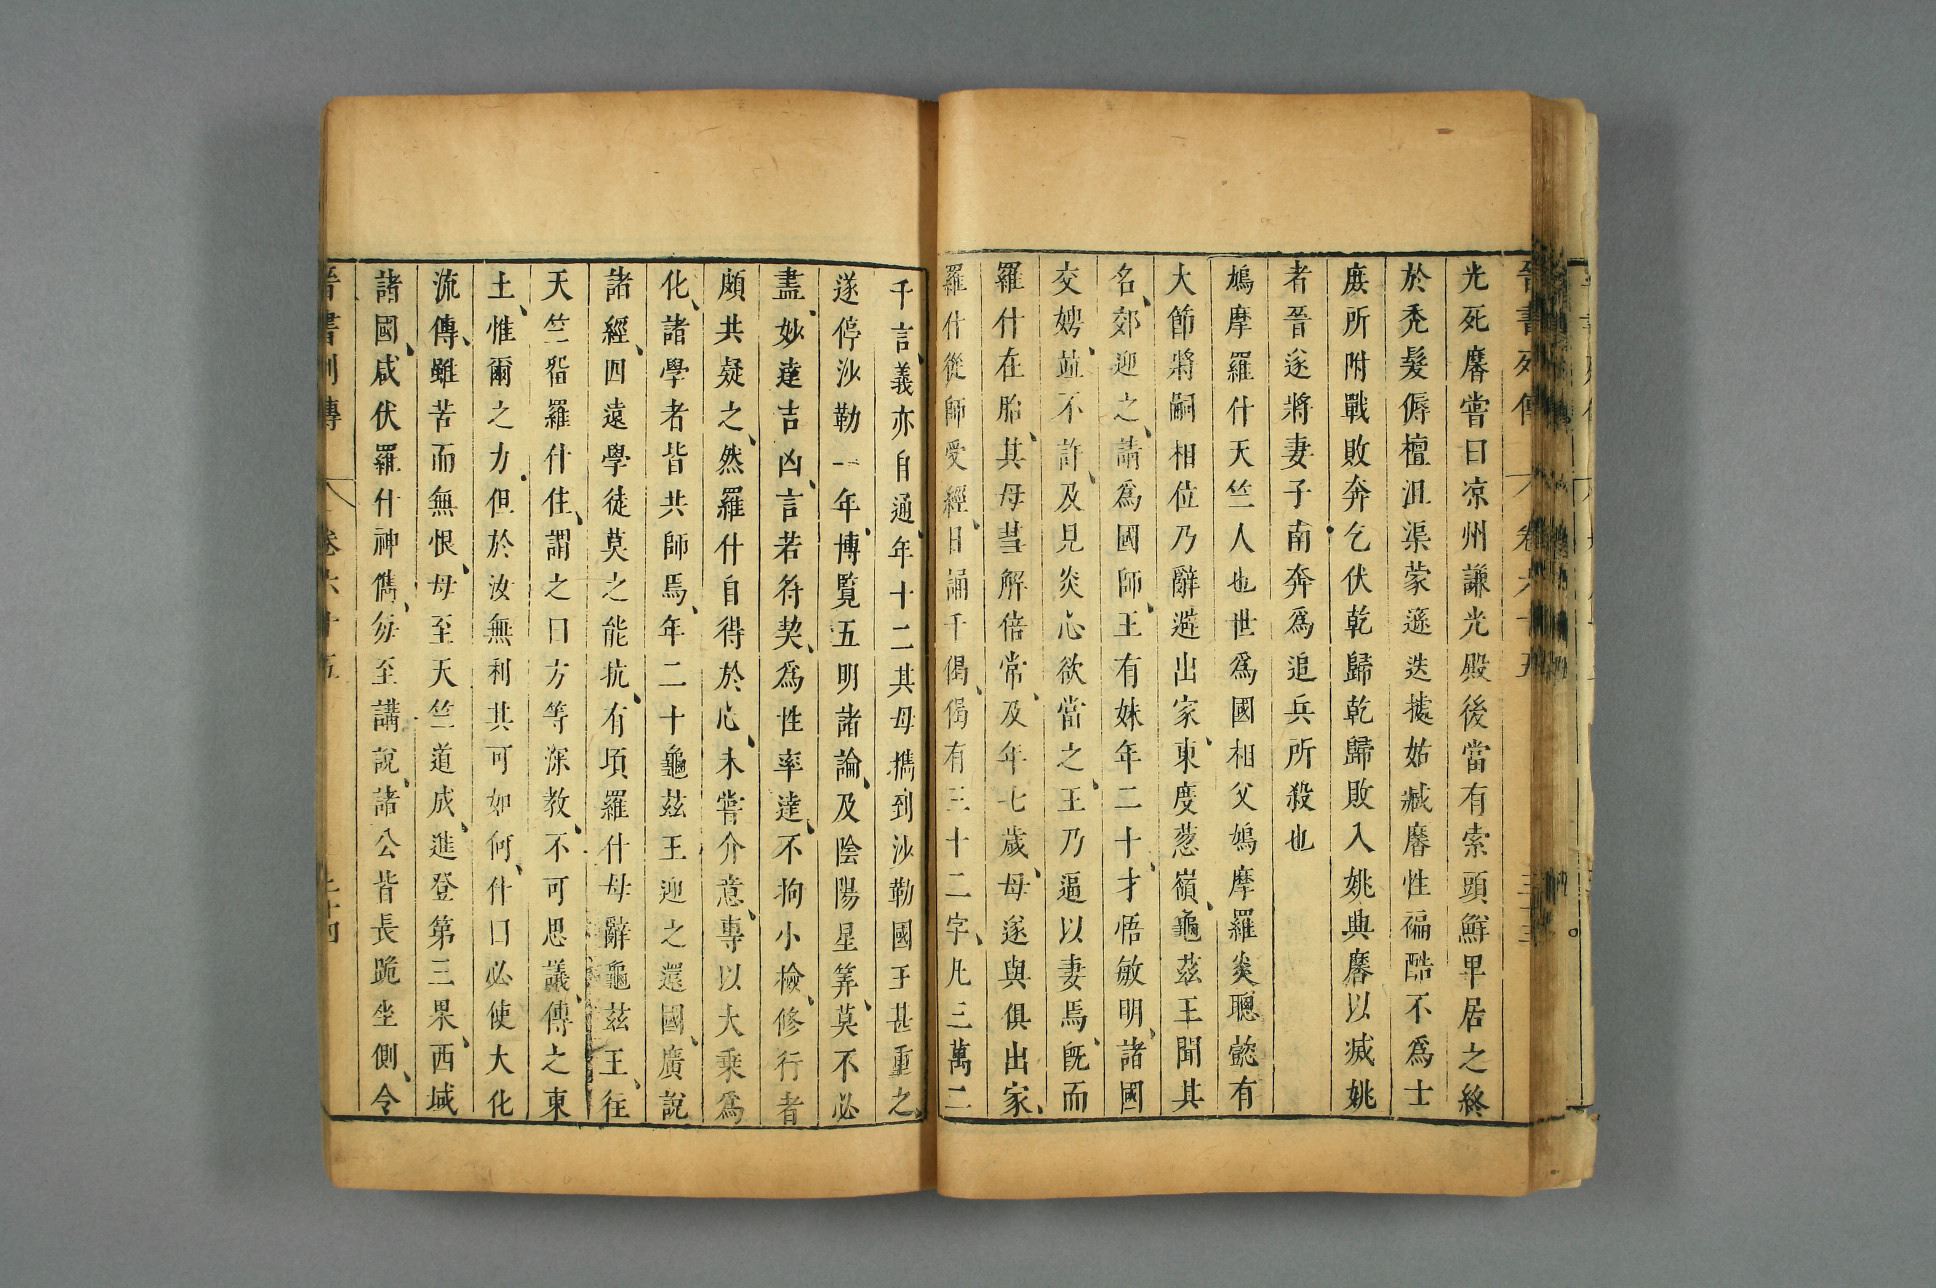 晉書列傳 卷六十五 三十三
光死黁嘗曰凉州謙光殿後當有索頭鮮卑居之終
於禿髮傉檀沮渠蒙遜迭據姑臧黁性褊酷不爲士
庶所附戰敗奔乞伏乾歸乾歸敗入姚興黁以滅姚
者晉遂將妻子南奔爲追兵所殺也
鳩摩羅什天竺人也世爲國相父鳩摩羅炎聰懿有
大節將嗣相位乃辭避出家、東度葱嶺、龜茲王聞其
名、郊迎之、請爲國師、王有妹年二十、才悟敏明、諸國
交娉、並不許、及見炎心欲當之、王乃逼以妻焉、旣而
羅什在胎、其母慧解倍常、及年七歲、母遂與俱出家、
羅什從師受經、日誦千偈、偈有三十二字、凡三萬二
千言、義亦自通、年十二其母攜到沙勒國王甚重之、
遂停沙勒一年、博覽五明諸論、及陰陽星筭、莫不必
盡、妙達吉凶、言若符契、爲性率達、不拘小檢、修行者
頗共疑之、然羅什自得於心、未嘗介意、專以大乘爲
化、諸學者皆共師焉、年二十龜茲王迎之還國、廣說
諸經、四遠學徒莫之能抗、有頃羅什母辭龜茲王、往
天竺留羅什住、謂之曰方等深教、不可思議、傳之東
土、惟爾之力、但於汝無利其可如何、什曰必使大化
流傳、雖苦而無恨、母至天竺道成、進登第三果、西域
諸國、咸伏羅什神儁、每至講說、諸公皆長跪坐側、令
晉書列傳 卷六十五 三十四